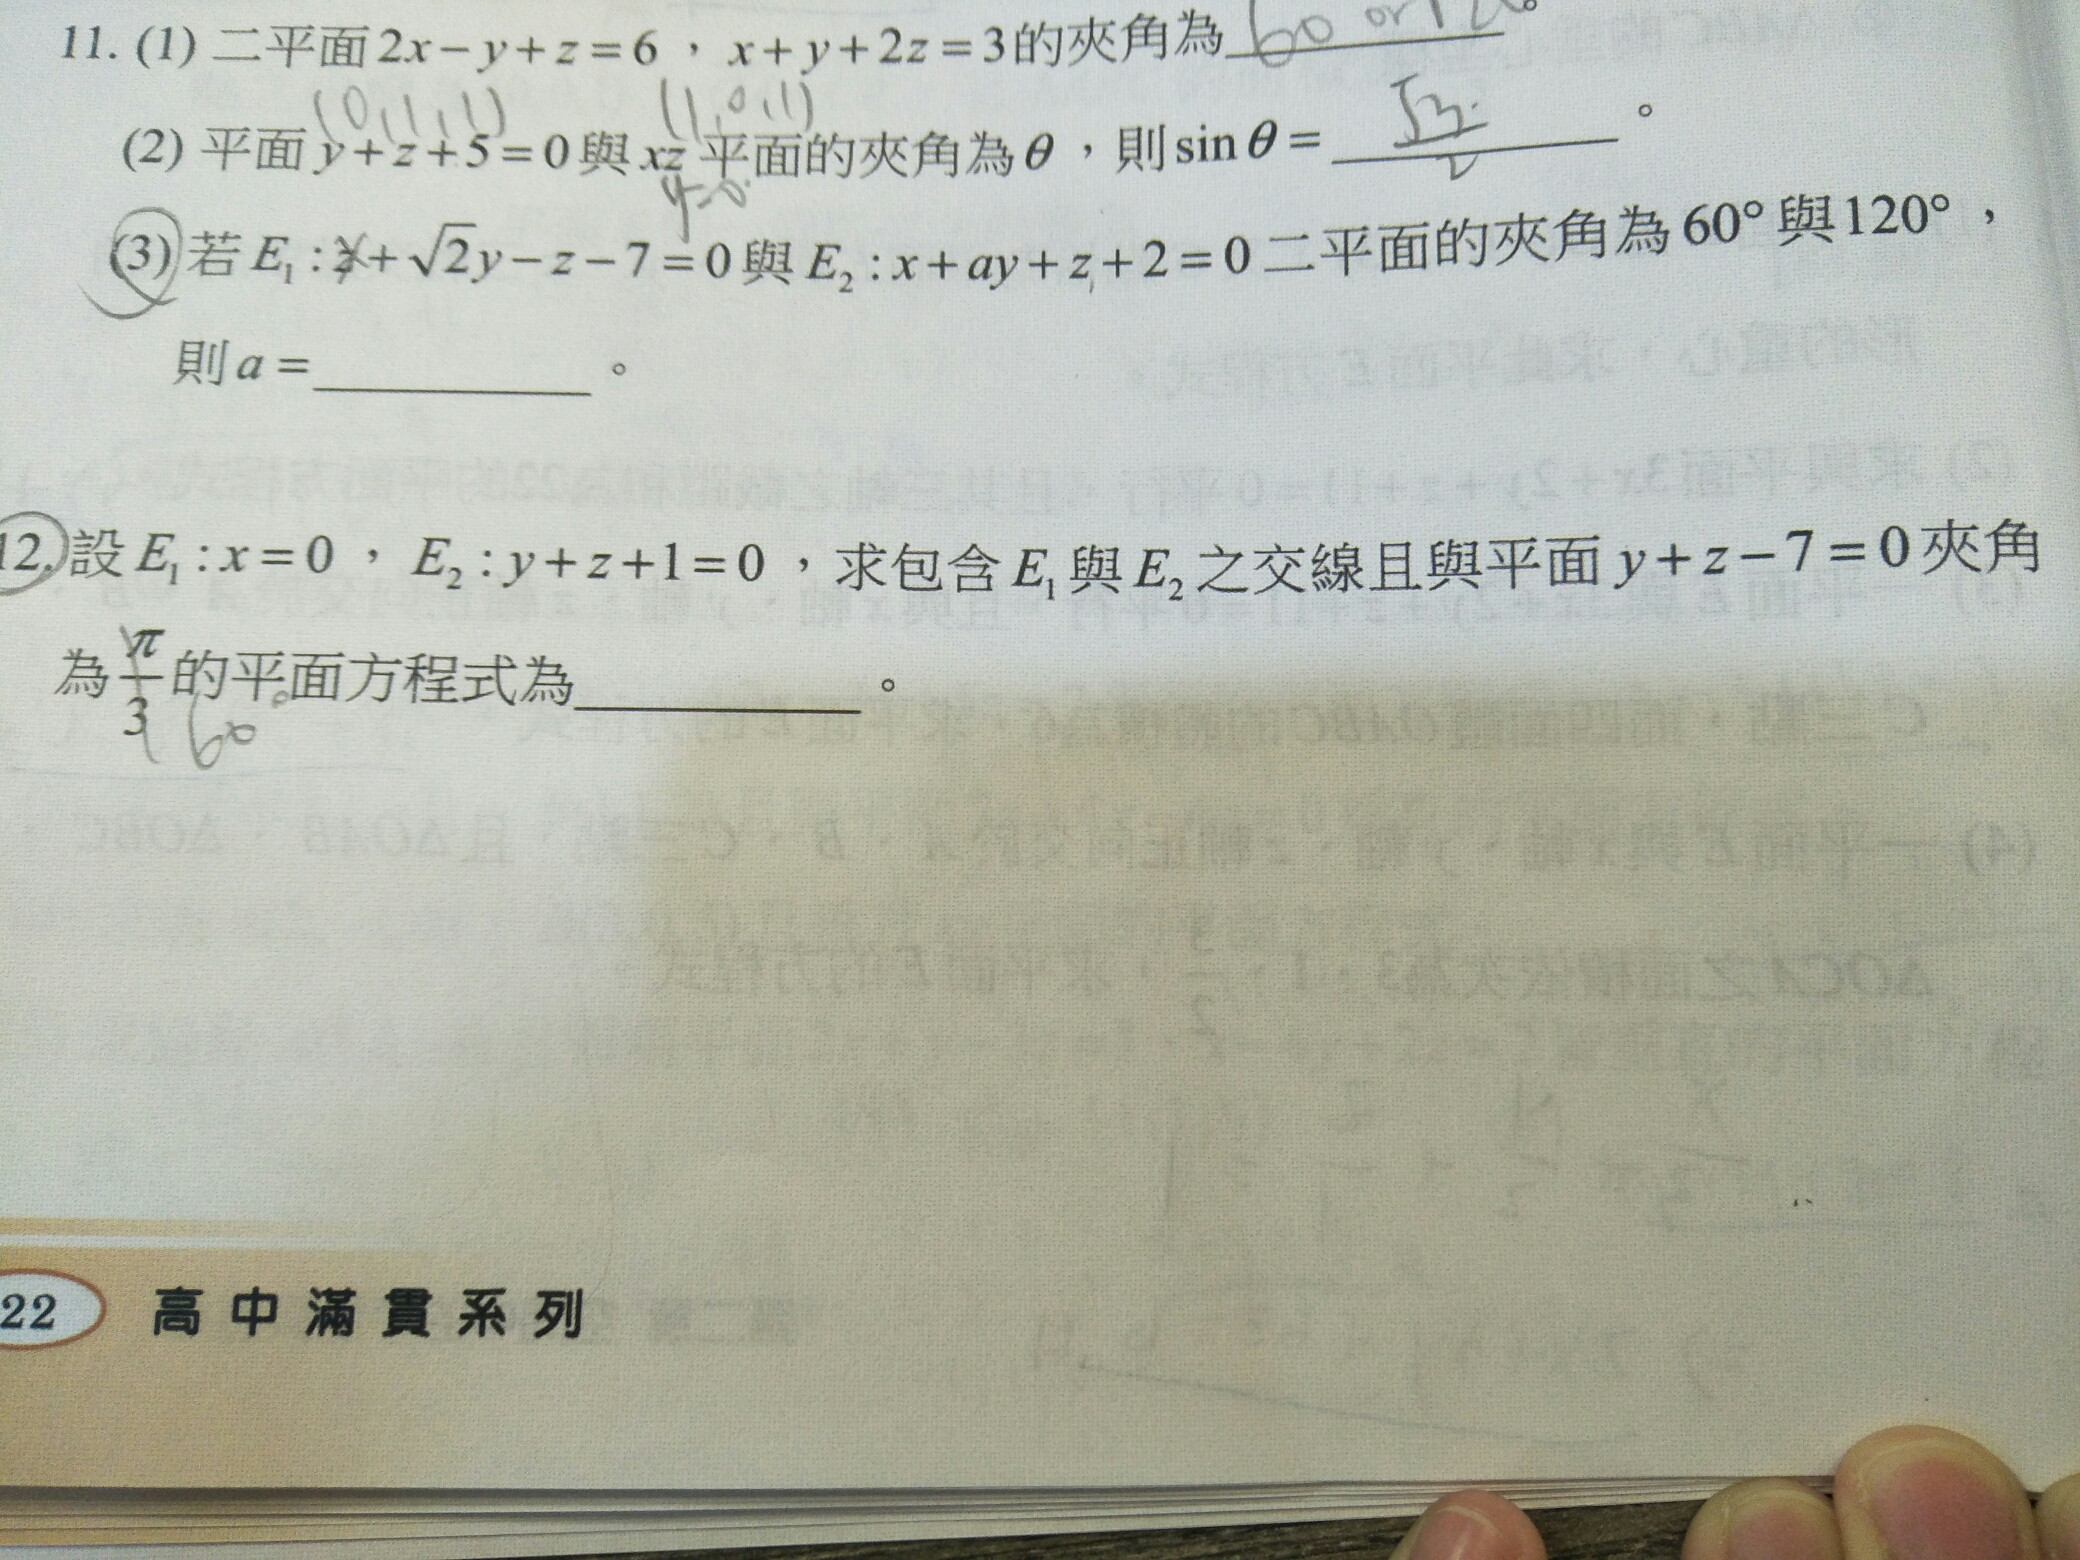 11. (1) 二平面2x−y+z=6，x+y+2z=3的夾角為 60 or 120。
(0,1,1) (1,0,1)
(2) 平面y+z+5=0與xz平面的夾角為θ，則sinθ= √3/2 。
y=0
(3) 若E₁:x+√2y−z−7=0與E₂:x+ay+z+2=0二平面的夾角為60°與120°，
則a=________。
12. 設E₁:x=0，E₂:y+z+1=0，求包含E₁與E₂之交線且與平面y+z−7=0夾角
為π/3的平面方程式為________。
60°
22 高中滿貫系列